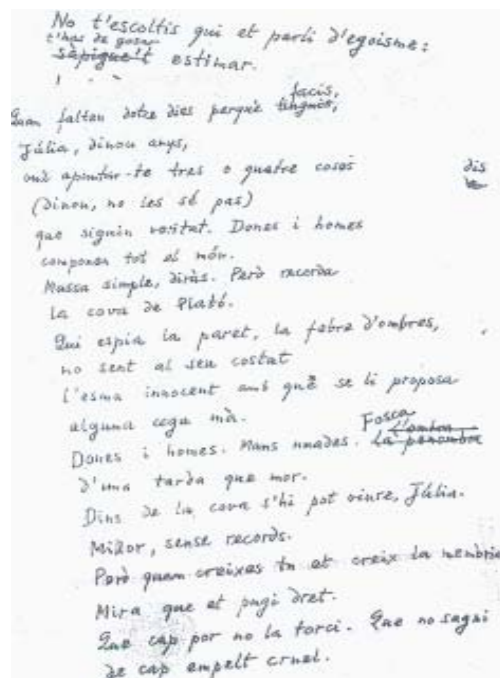 No t'escoltis qui et parli d'egoisme:
t'has de gosar
sàpigue't estimar.
facis,
Quan faltan dotze dies perquè tinguis,
Júlia, dinou anys,
vull apuntar-te tres o quatre coses
dis
(dinou, no les sé pas)
que siguin veritat. Dones i homes
componen tot el món.
Massa simple, diràs. Però recorda
la cova de Plató.
Qui espia la paret, la febre d'ombres,
no sent al seu costat
l'esma innocent amb què se li proposa
alguna cega mà.
Fosca
Dones i homes. Mans nuades. L'ombra
La penombra
d'una tarda que mor.
Dins de la cova s'hi pot viure, Júlia.
Millor, sense records.
Però quan creixes tu et creix la membria
Mira que et pugi dret.
Que cap por no la torci. Que no sagni
de cap empelt cruel.